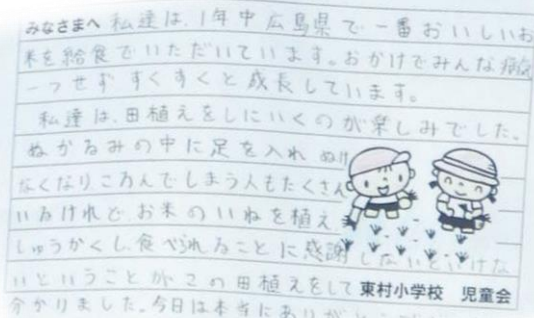 みなさまへ 私達は、1年中広島県で一番おいしいお
米を給食でいただいています。おかげでみんな病気
一つせずすくすくと成長しています。
私達は、田植えをしにいくのが楽しみでした。
ぬかるみの中に足を入れ ぬけ
なくなりころんでしまう人もたくさん
いるけれど、お米のいねを植え、
しゅうかくし食べられることに感謝しないといけな
いということがこの田植えをして
東村小学校 児童会
分かりました。今日は本当にありがとう